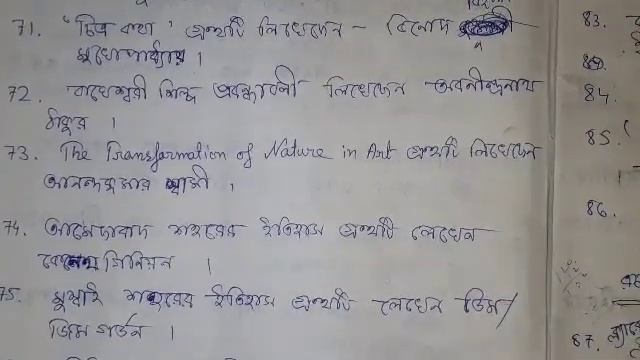 71. "চিত্র কথা" গ্রন্থটি লিখেছেন - বিনোদ বিহারী
মুখোপাধ্যায় ।
72. বাগেশ্বরী শিল্প প্রবন্ধাবলী লিখেছেন অবনীন্দ্রনাথ
ঠাকুর ।
73. The Transformation of Nature in Art গ্রন্থটি লিখেছেন
আনন্দকুমার স্বামী ।
74. আমেদাবাদ শহরের ইতিহাস গ্রন্থটি লেখেন
গিলিয়ন ।
75. মুম্বাই শহরের ইতিহাস গ্রন্থটি লেখেন জিম/
জিম গর্ডন ।
83.
84.
85.
86.
87.